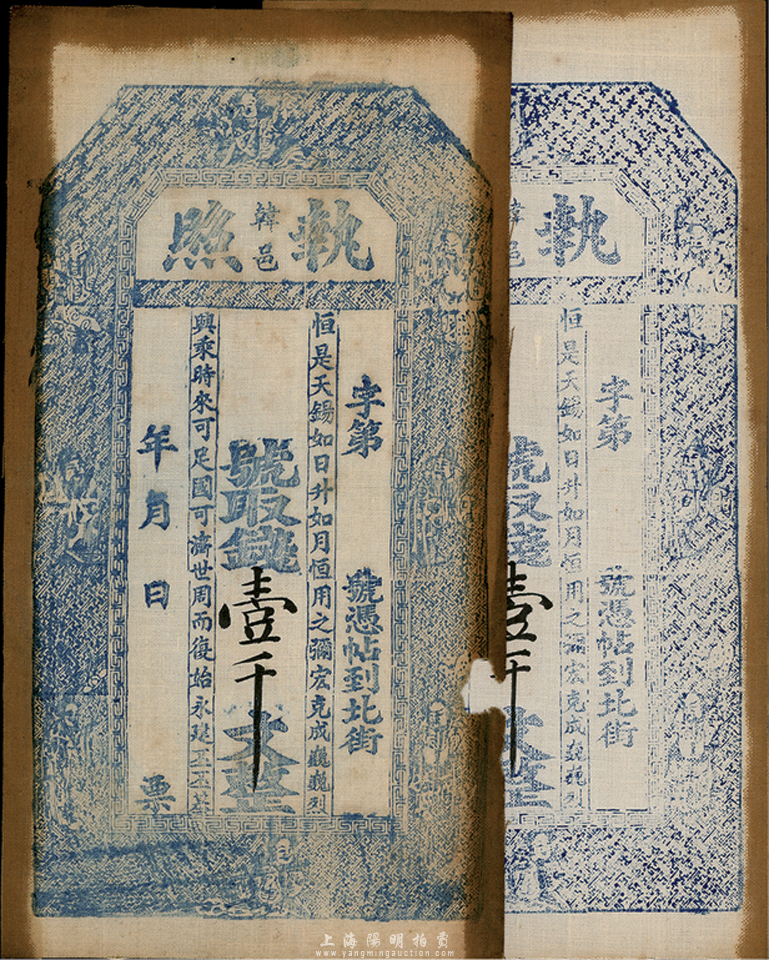 執韓邑照
字第 號憑帖到北街
恒是天錫如日升如月恒用之彌宏克成巍巍烈
號取錢壹千文整
與乘時來可足國可濟世周而復始永建丕丕基
年月日 票
執韓邑
字第 號憑帖到北街
恒是天錫如日升如月恒用之彌宏克成巍巍烈
號取錢壹千文整
上海陽明拍賣
www.yangmingauction.com